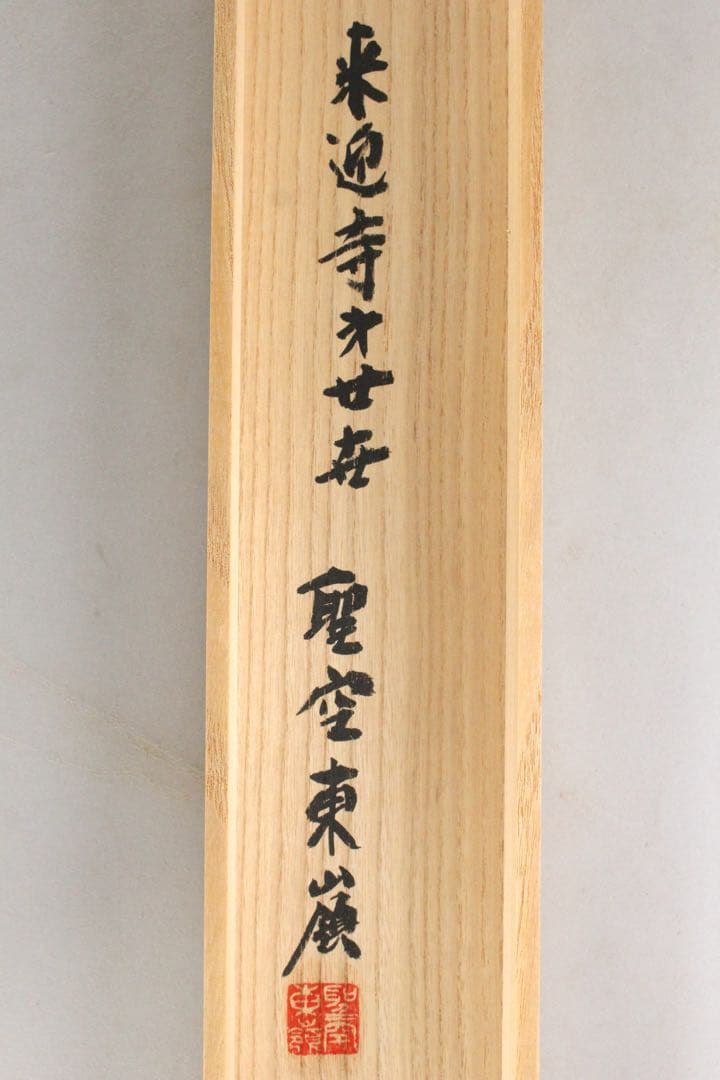 来迎寺才廿世 聖空東嶺